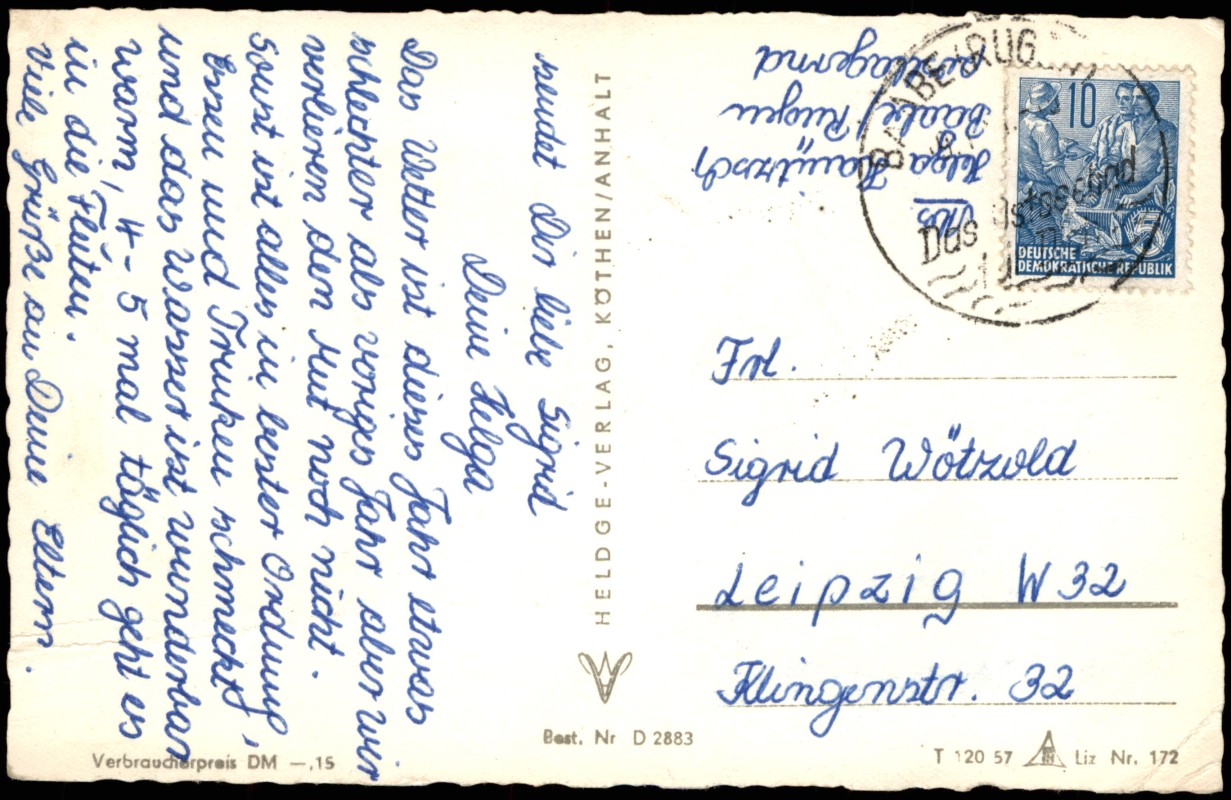 sendet Dir liebe Sigrid
Deine Helga
Das Wetter ist dieses Jahr etwas
schlechter als voriges Jahr aber wir
verlieren den Mut noch nicht.
Sonst ist alles in bester Ordung,
Essen und Trinken schmeckt,
und das Wasser ist wunderbar
warm, 4-5 mal täglich geht es
in die Fluten.
Viele Grüße an Deine Eltern.
Verbraucherpreis DM —,15
HELDGE-VERLAG, KÖTHEN/ANHALT
Best. Nr D 2883
Abs.
Helga
Baabe Rügen
postlagernd
BAABE (RÜG
Das Ostseebad
10
DEUTSCHE
DEMOKRATISCHE REPUBLIK
Frl.
Sigrid Wötzold
Leipzig W 32
Klingenstr. 32
T 120 57
Liz Nr. 172